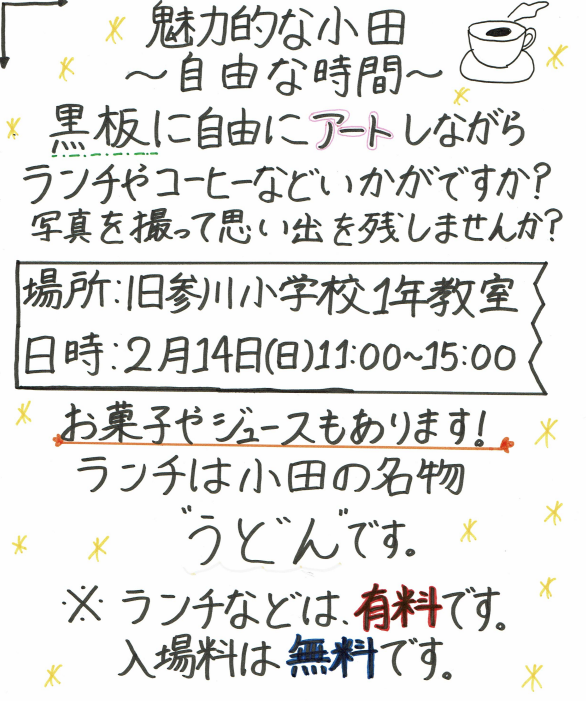 魅力的な小田
～自由な時間～
黒板に自由にアートしながら
ランチやコーヒーなどいかがですか?
写真を撮って思い出を残しませんか?
場所:旧参川小学校1年教室
日時:2月14日(日)11:00~15:00
お菓子やジュースもあります!
ランチは小田の名物
"うどん"です。
※ランチなどは、有料です。
入場料は無料です。